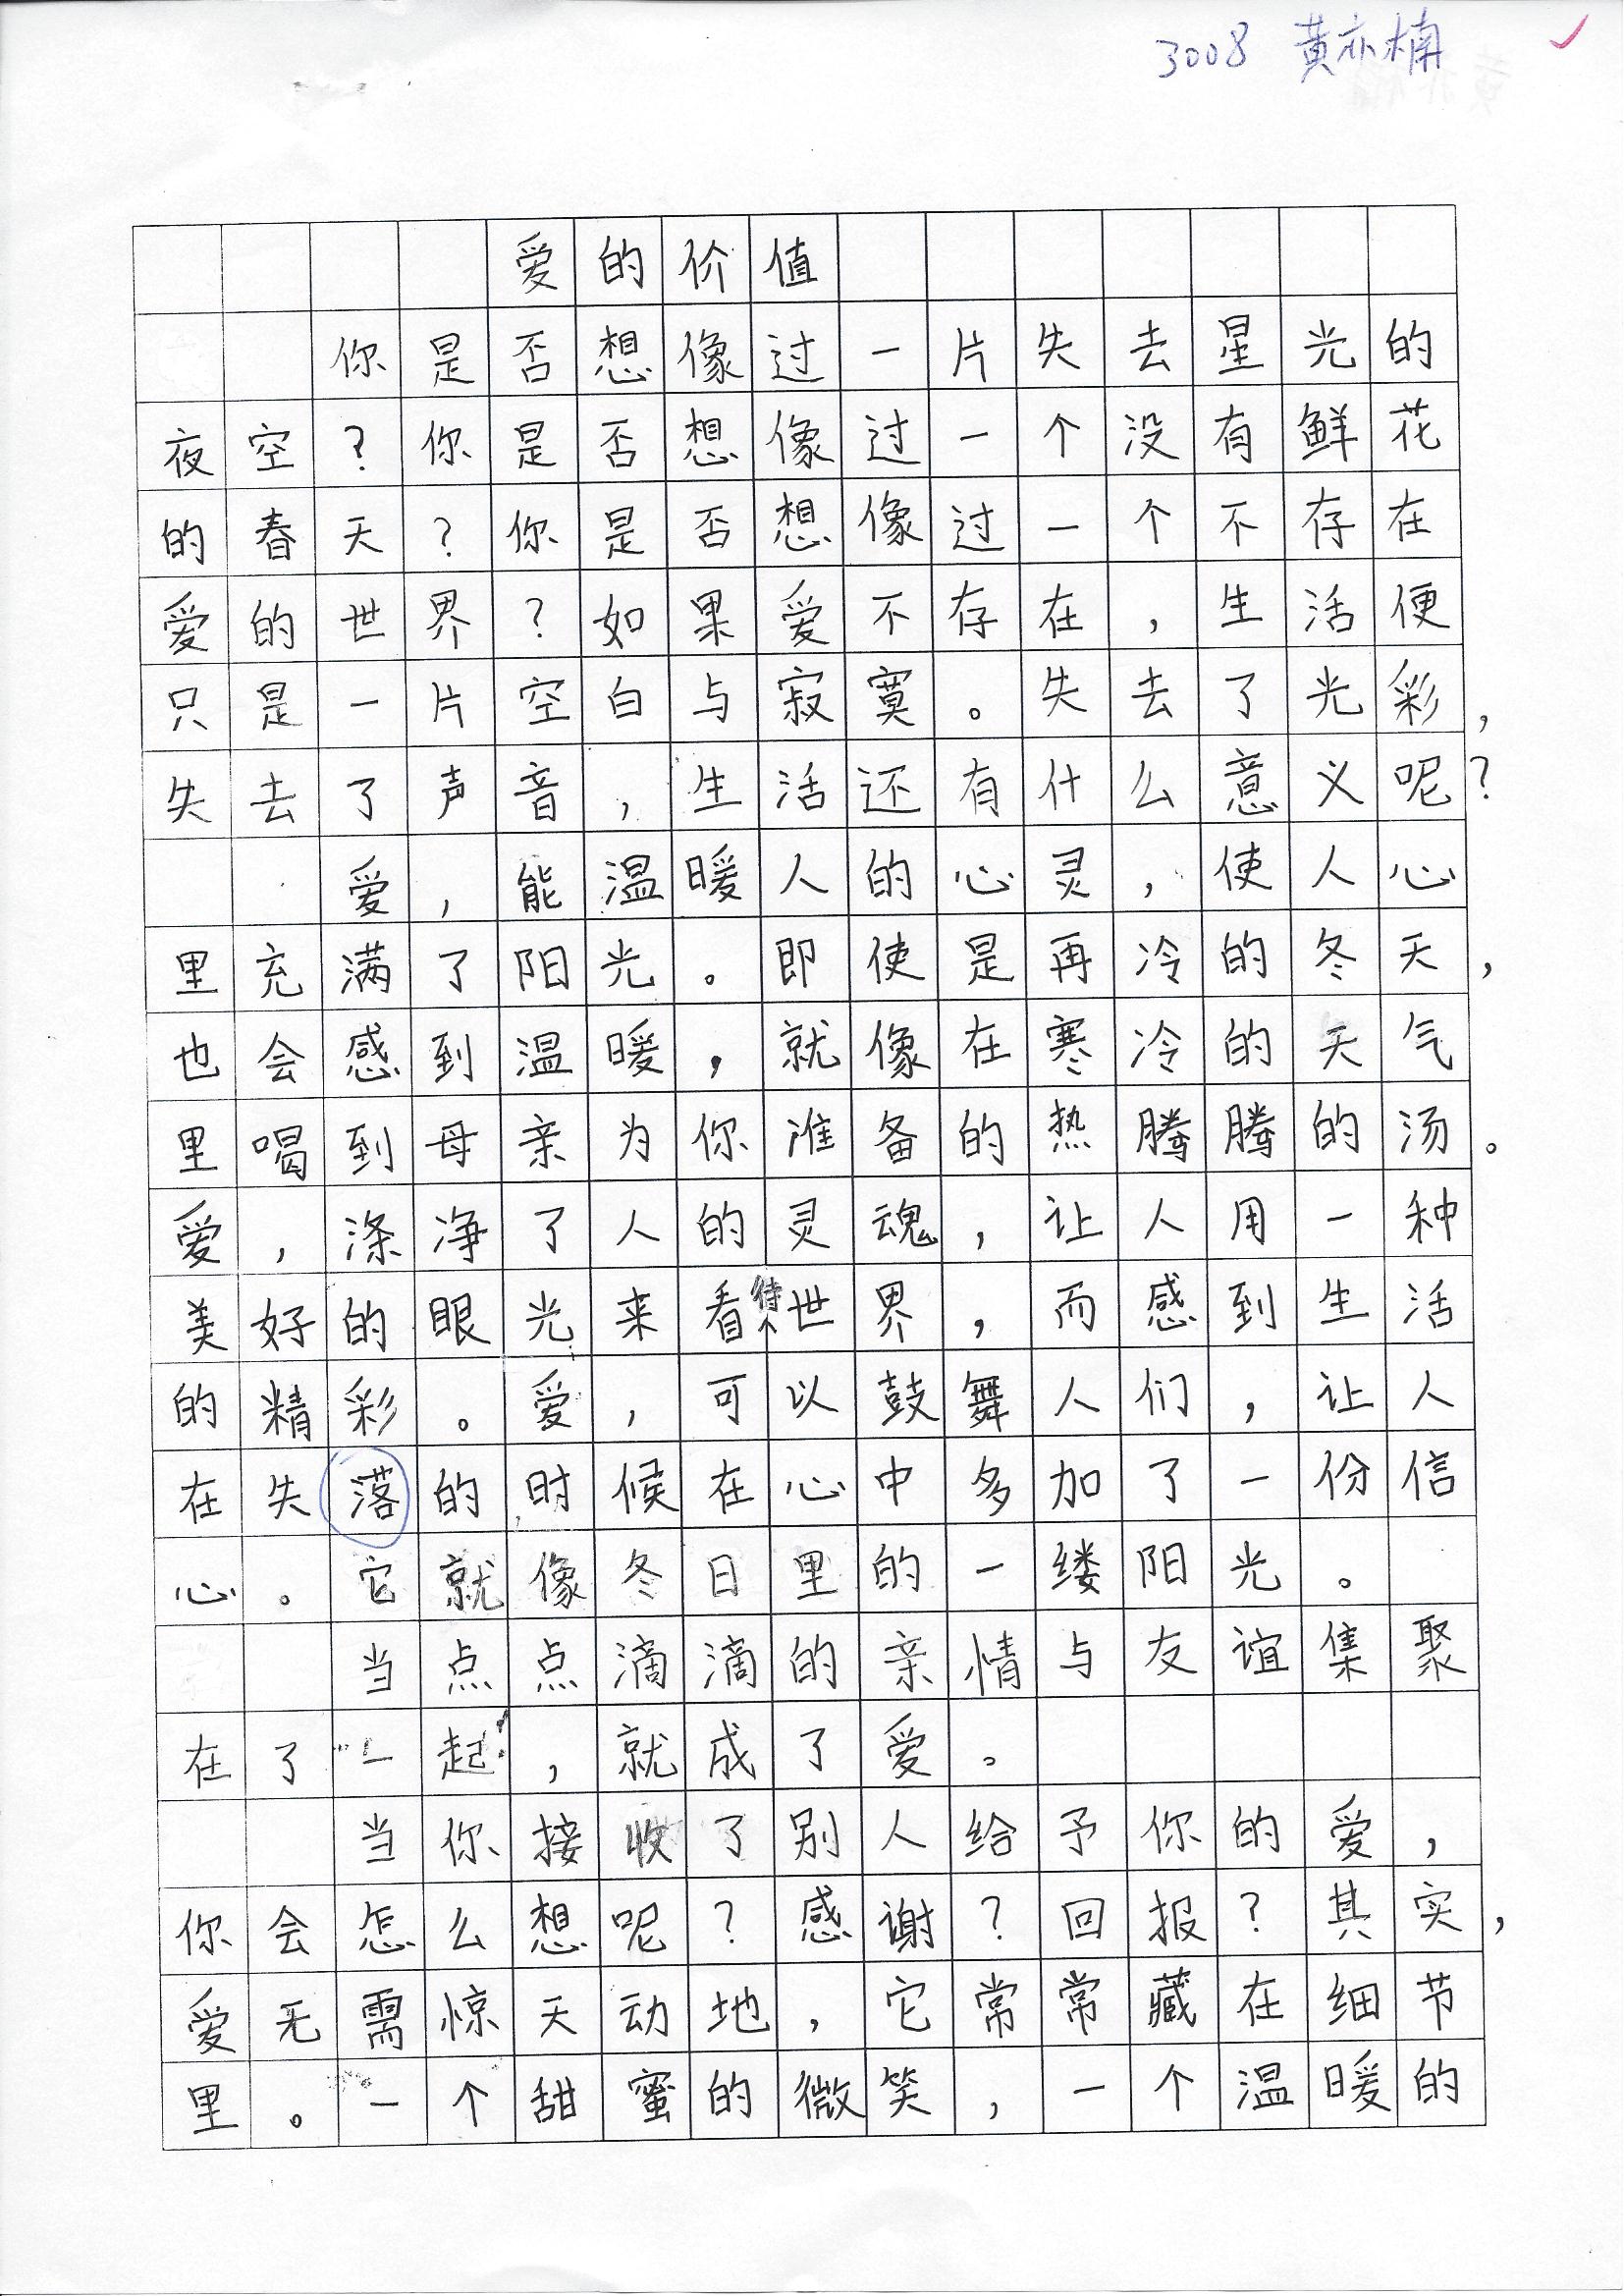 3008 黄亦楠
爱的价值
你是否想像过一片失去星光的
夜空？你是否想像过一个没有鲜花
的春天？你是否想像过一个不存在
爱的世界？如果爱不存在，生活便
只是一片空白与寂寞。失去了光彩，
失去了声音，生活还有什么意义呢？
爱，能温暖人的心灵，使人心
里充满了阳光。即使是再冷的冬天，
也会感到温暖，就像在寒冷的天气
里喝到母亲为你准备的热腾腾的汤。
爱，涤净了人的灵魂，让人用一种
美好的眼光来看待世界，而感到生活
的精彩。爱，可以鼓舞人们，让人
在失落的时候在心中多加了一份信
心。它就像冬日里的一缕阳光。
当点点滴滴的亲情与友谊集聚
在了一起，就成了爱。
当你接收了别人给予你的爱，
你会怎么想呢？感谢？回报？其实，
爱无需惊天动地，它常常藏在细节
里。一个甜蜜的微笑，一个温暖的